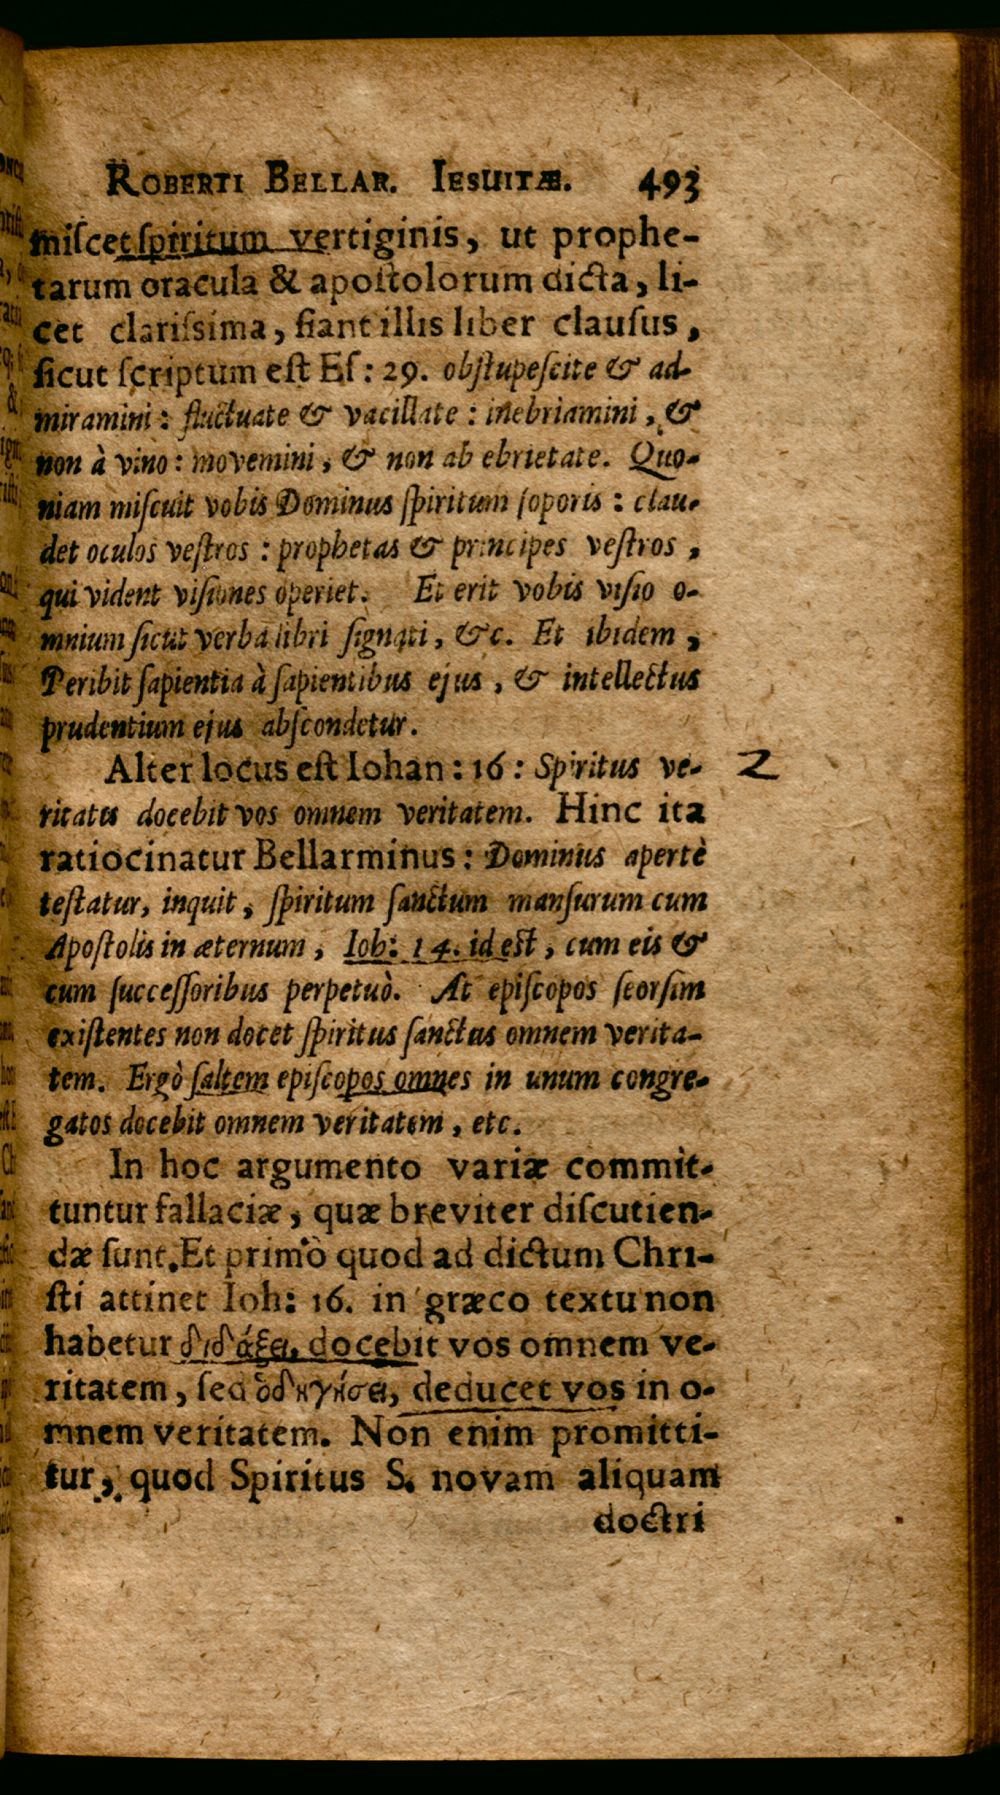 ROBERTI BELLAR. IESUITÆ. 493
miſcet ſpiritum vertiginis, ut prophe-
tarum oracula & apoſtolorum dicta, li-
cet clariſsima, fiant illis liber clauſus,
ſicut ſcriptum eſt Eſ: 29. obſtupeſcite & ad-
miramini: fluctuate & vacillate: inebriamini, &
non à vino: movemini, & non ab ebrietate. Quo-
niam miſcuit vobis Dominus ſpiritum ſoporis: clau-
det oculos veſtros: prophetas & principes veſtros,
qui vident viſiones operiet. Et erit vobis viſio o-
mnium ſicut verba libri ſignati, &c. Et ibidem,
Peribit ſapientia à ſapientibus ejus, & intellectus
prudentium ejus abſcondetur.
Alter locus eſt Iohan: 16: Spiritus ve- 2
ritatis docebit vos omnem veritatem. Hinc ita
ratiocinatur Bellarminus: Dominus apertè
teſtatur, inquit, ſpiritum ſanctum manſurum cum
Apoſtolis in æternum, Ioh: 14. id eſt, cum eis &
cum ſucceſſoribus perpetuò. At epiſcopos ſeorſim
exiſtentes non docet ſpiritus ſanctus omnem verita-
tem. Ergò ſaltem epiſcopos omnes in unum congre-
gatos docebit omnem veritatem, etc.
In hoc argumento variæ commit-
tuntur fallaciæ, quæ breviter diſcutien-
dæ ſunt. Et primò quod ad dictum Chri-
ſti attinet Ioh: 16. in græco textu non
habetur διδάξει, docebit vos omnem ve-
ritatem, ſed ὁδηγήσει, deducet vos in o-
mnem veritatem. Non enim promitti-
tur, quod Spiritus S. novam aliquam
doctri